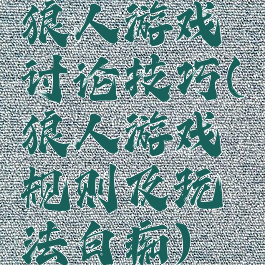 狼人游戏
讨论技巧(
狼人游戏
规则及玩
法白痴)